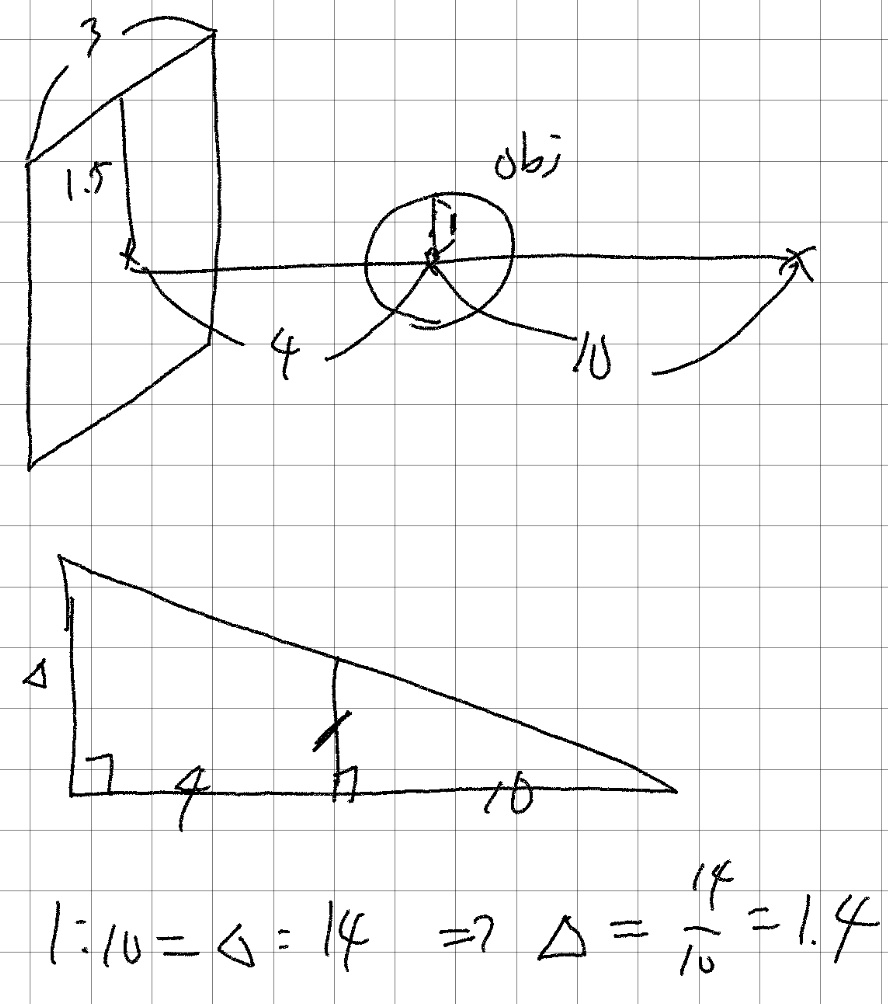 3
1.5
obj
1
4
10
Δ
1
4
10
1:10 = Δ:14 => Δ = 14/10 = 1.4